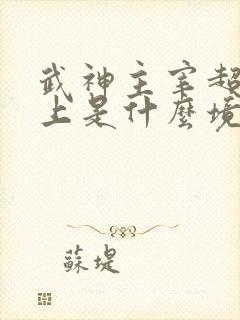 武神主宰超
上是什麼境
蘇堤